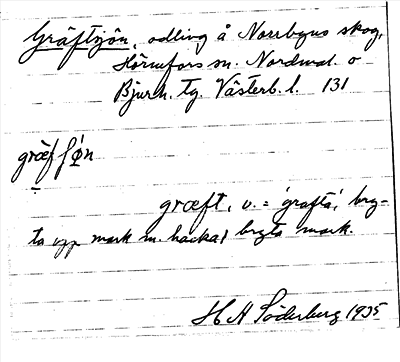 Gräftsjön, odling å Norrbyns skog,
Hörnefors sn. Nordmal. o
Bjurh. tg. Västerb. l. 131
græfʃøn
græft, v. = 'gräfta', bry-
ta upp mark m. hacka, bryta mark.
H A Söderberg 1935